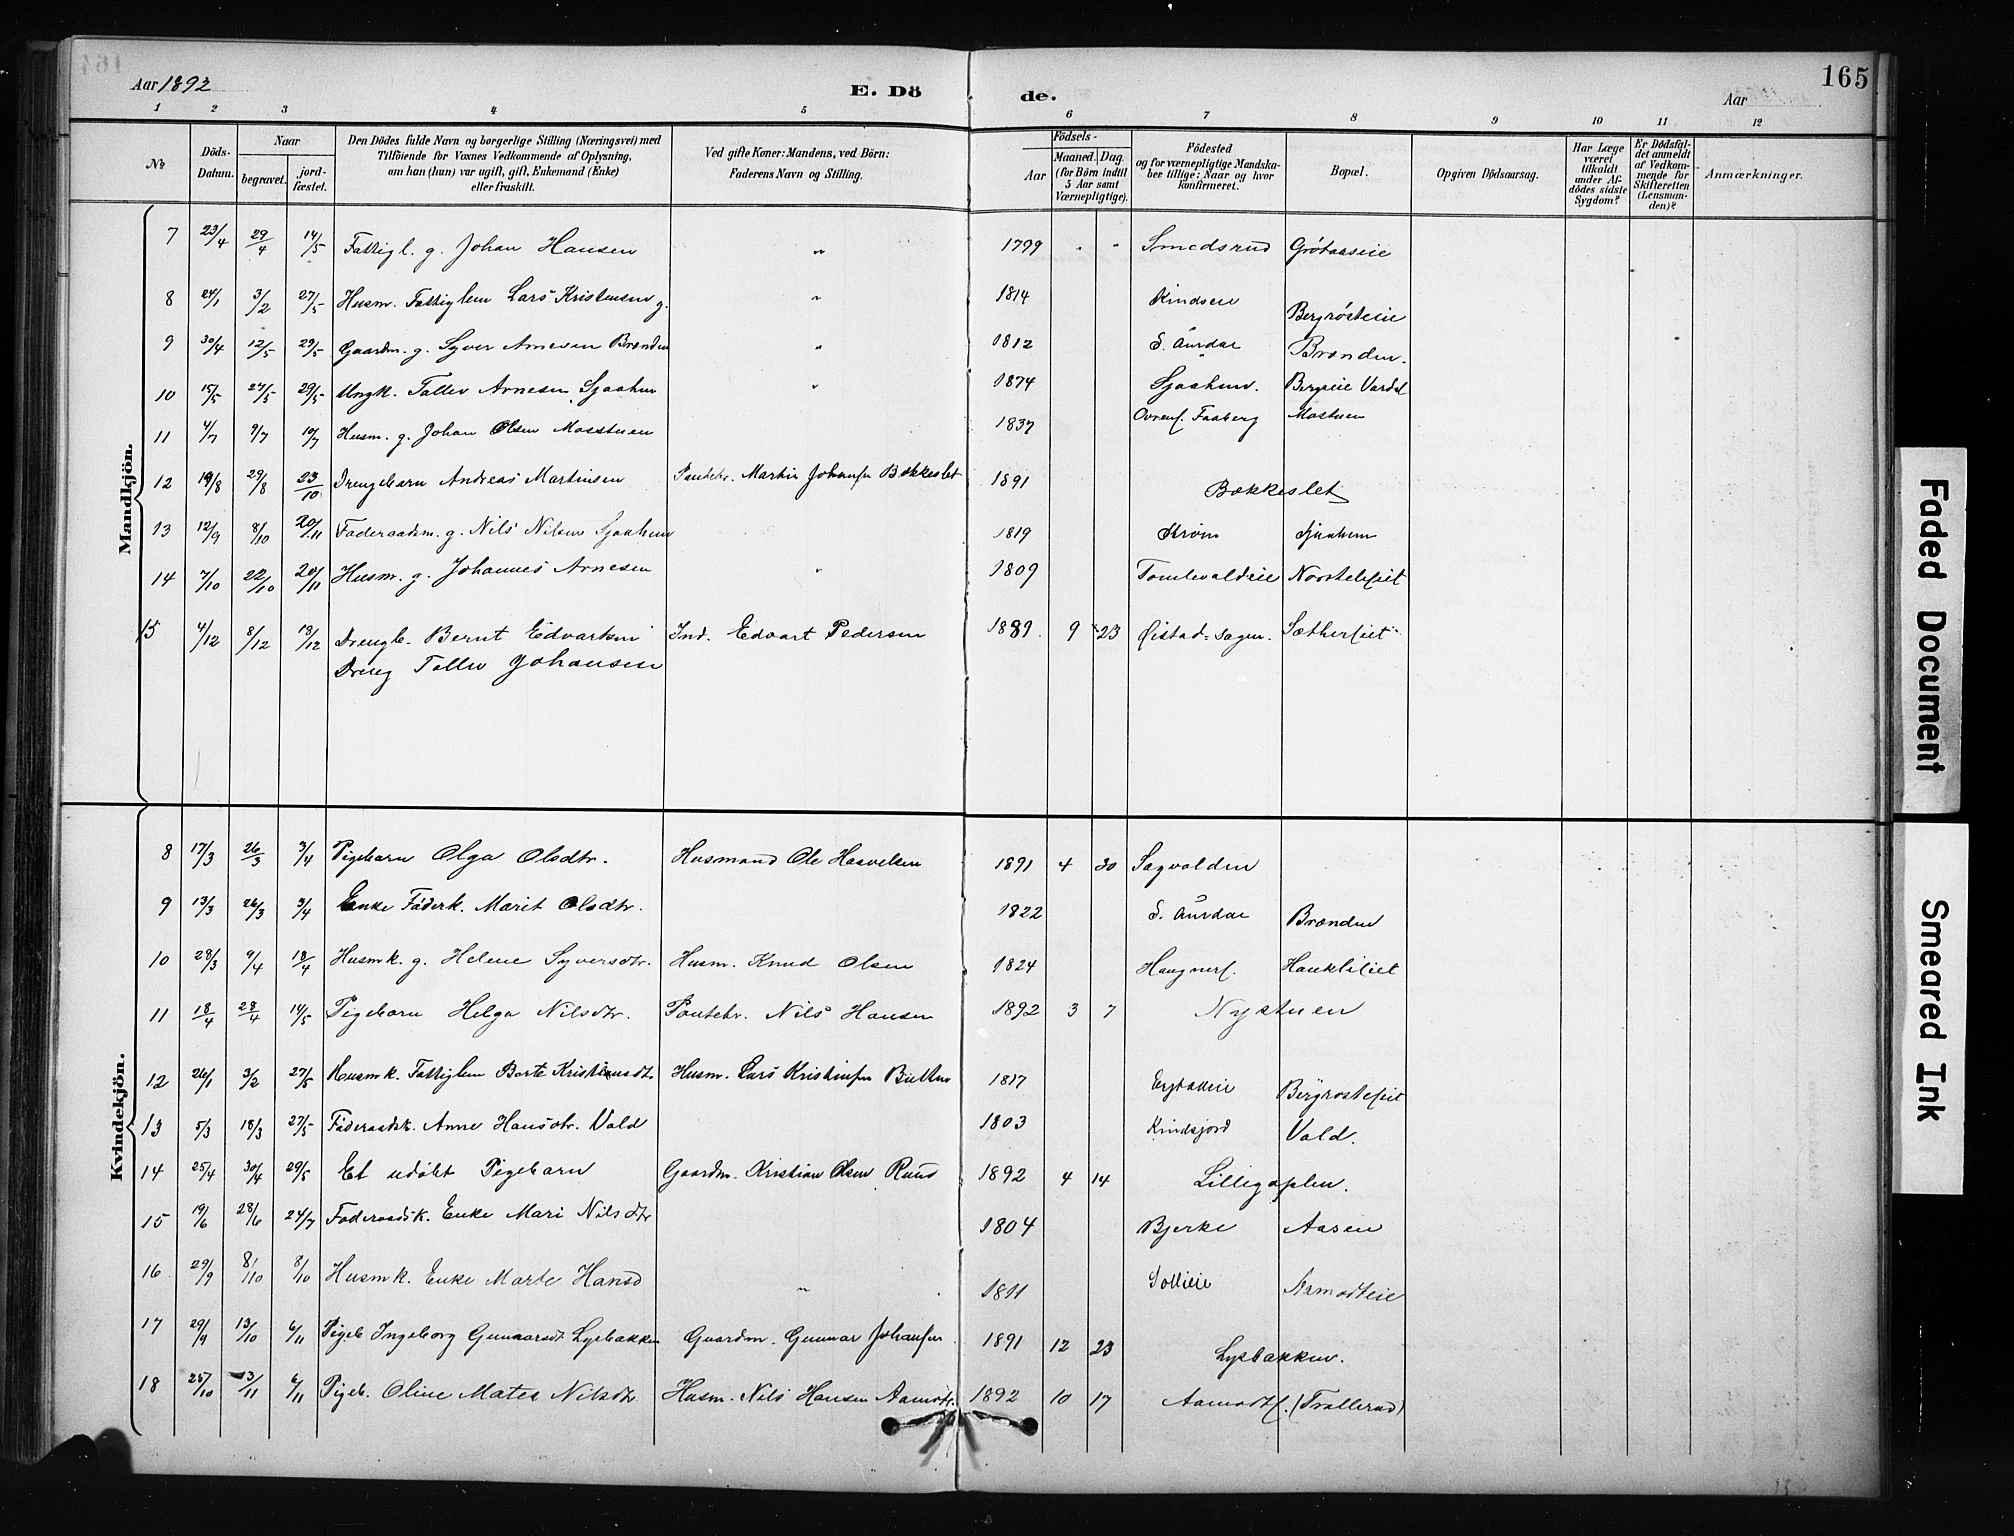 165
Aar 1892
E. Dö de.
Aar
1 2 3 4 5 6 7 8 9 10 11 12
№
Döds-Datum.
Naar
begravet.
jord-fæstet.
Den Dödes fulde Navn og borgerlige Stilling (Næringsvei) med Tilföiende for Voxnes Vedkommende af Oplysning, om han (hun) var ugift, gift, Enkemand (Enke) eller fraskilt.
Ved gifte Koner: Mandens, ved Börn: Faderens Navn og Stilling.
Födsels-
Aar
Maaned. Dag. (for Börn indtil 5 Aar samt Værnepligtige).
Födested og for værnepligtige Mandskaber tillige: Naar og hvor konfirmeret.
Bopæl.
Opgiven Dödsaarsag.
Har Læge været tilkaldt under Afdödes sidste Sygdom?
Er Dödsfaldet anmeldt af Vedkommende for Skifteretten (Lensmanden)?
Anmærkninger.
Mandkjön.
7 23/4 29/4 14/5 Fattigl. g. Johan Hansen " 1799 " " Smedsrud Grøtaaseie
8 24/1 3/2 27/5 Husm. Fattiglem Lars Kristensen g. " 1814 Kindseie Bergrosteie
9 30/4 12/5 29/5 Gaardm. g. Syver Arnesen Brænden " 1812 S. Aurdal Brænden.
10 15/5 27/5 29/5 Ungk. Tollev Arnesen Sjaahm " 1874 Sjaahm. Bergseie Vardal
11 4/7 9/7 10/7 Husm. g. Johan Olsen Mosstuen 1837 Faaberg Mostuen
12 19/8 29/8 23/10 Drengebarn Andreas Martinsen Martin Johansen Bækkeslet 1891 Bækkeslet
13 12/9 8/10 20/11 Føderaadsm. g. Nils Nilsen Sjaahm 1819 Strøm Sjaahm
14 7/10 22/10 20/11 Husm. g. Johannes Arnesen " 1809 Tomlevoldeie
15 4/12 8/12 13/12 Drengb. Bernt Edvartsen Ind. Edvart Pedersen 1889. 9 23 Øistad-Sagen.
Dreng Tollev Johansen
Kvindekjön.
8 17/3 26/3 3/4 Pigebarn Olga Olsdtr. Husmand Ole Haavelsen 1891 4 30 Sagvolden
9 13/3 26/3 3/4 Enke Føderk. Marit Olsdtr. 1822 S. Aurdal Brænden
10 28/3 9/4 18/4 Husmk. g. Helene Syversdtr. Husm. Knud Olsen 1824
11 18/4 28/4 14/5 Pigebarn Helga Nilsdtr. Nils Hansen 1892 3 7 Nystuen
12 26/1 3/2 27/5 Husmk. Fattiglem Berte Kristiansdtr Husm. Lars Kristensen 1817
13 5/3 18/3 27/5 Føderaadsk. Anne Hansdtr. Vold 1803 Kindsjord Vold.
14 25/4 30/4 29/5 Et udøbt Pigebarn Gaardm. Kristian Olsen Rund 1892 4 14 Lilligaplen.
15 19/6 28/6 24/7 Føderaadsk. Enke Mari Nilsdtr 1804 Bjerke Aasen
16 29/9 8/10 8/10 Husmk. Enke Marte Hansd " 1811 Sollieie Aamodteie
17 29/9 13/10 6/11 Pigeb Ingeborg Gunnarsdt. Lysbakken Gaardm. Gunnar Johansen 1891 12 23 Lysbakken.
18 25/10 3/11 6/11 Pigeb. Oline Matea Nilsdtr Husm. Nils Hansen Aamodt. 1892 10 17 Aamodt (Trollerud)
Faded Document
Smeared Ink